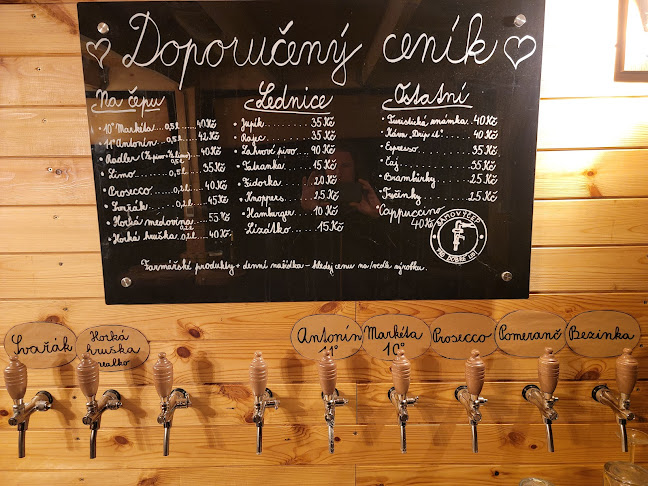 Doporučený ceník
Na čepu
10° Markéta 0,5l 40 Kč
11° Antonín 0,5l 42 Kč
Radler 40 Kč
Limo 0,5l 35 Kč
Prosecco 0,2l 40 Kč
Svařák 0,2l 45 Kč
Horká medovina 0,2l 55 Kč
Horká hruška 0,2l 40 Kč
Lednice
Jupík 35 Kč
Rajec 35 Kč
Lahvové pivo 90 Kč
Tatranka 15 Kč
Fidorka 20 Kč
Knoppers 25 Kč
Hamburger 10 Kč
Lízátko 15 Kč
Ostatní
Turistická známka 40 Kč
Káva Drip it! 40 Kč
Espresso 35 Kč
Čaj 35 Kč
Brambůrky 25 Kč
Tyčinky 25 Kč
Cappuccino
40 Kč
SAMOVÝČEP
PRO DOBRÉ LIDI
Farmářské produkty + denní nabídka - hledej cenu na/vedle výrobku.
Svařák
Horká
hruška
nealko
Antonín
11°
Markéta
10°
Prosecco
Pomeranč
Bezinka